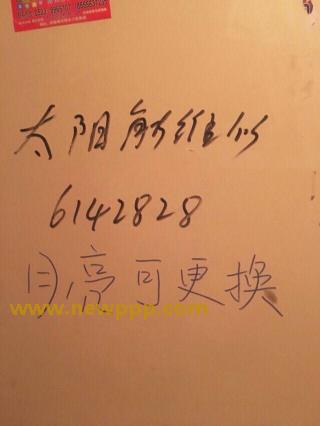 太阳能维修
6142828
旧,高可更换
www.newppp.com